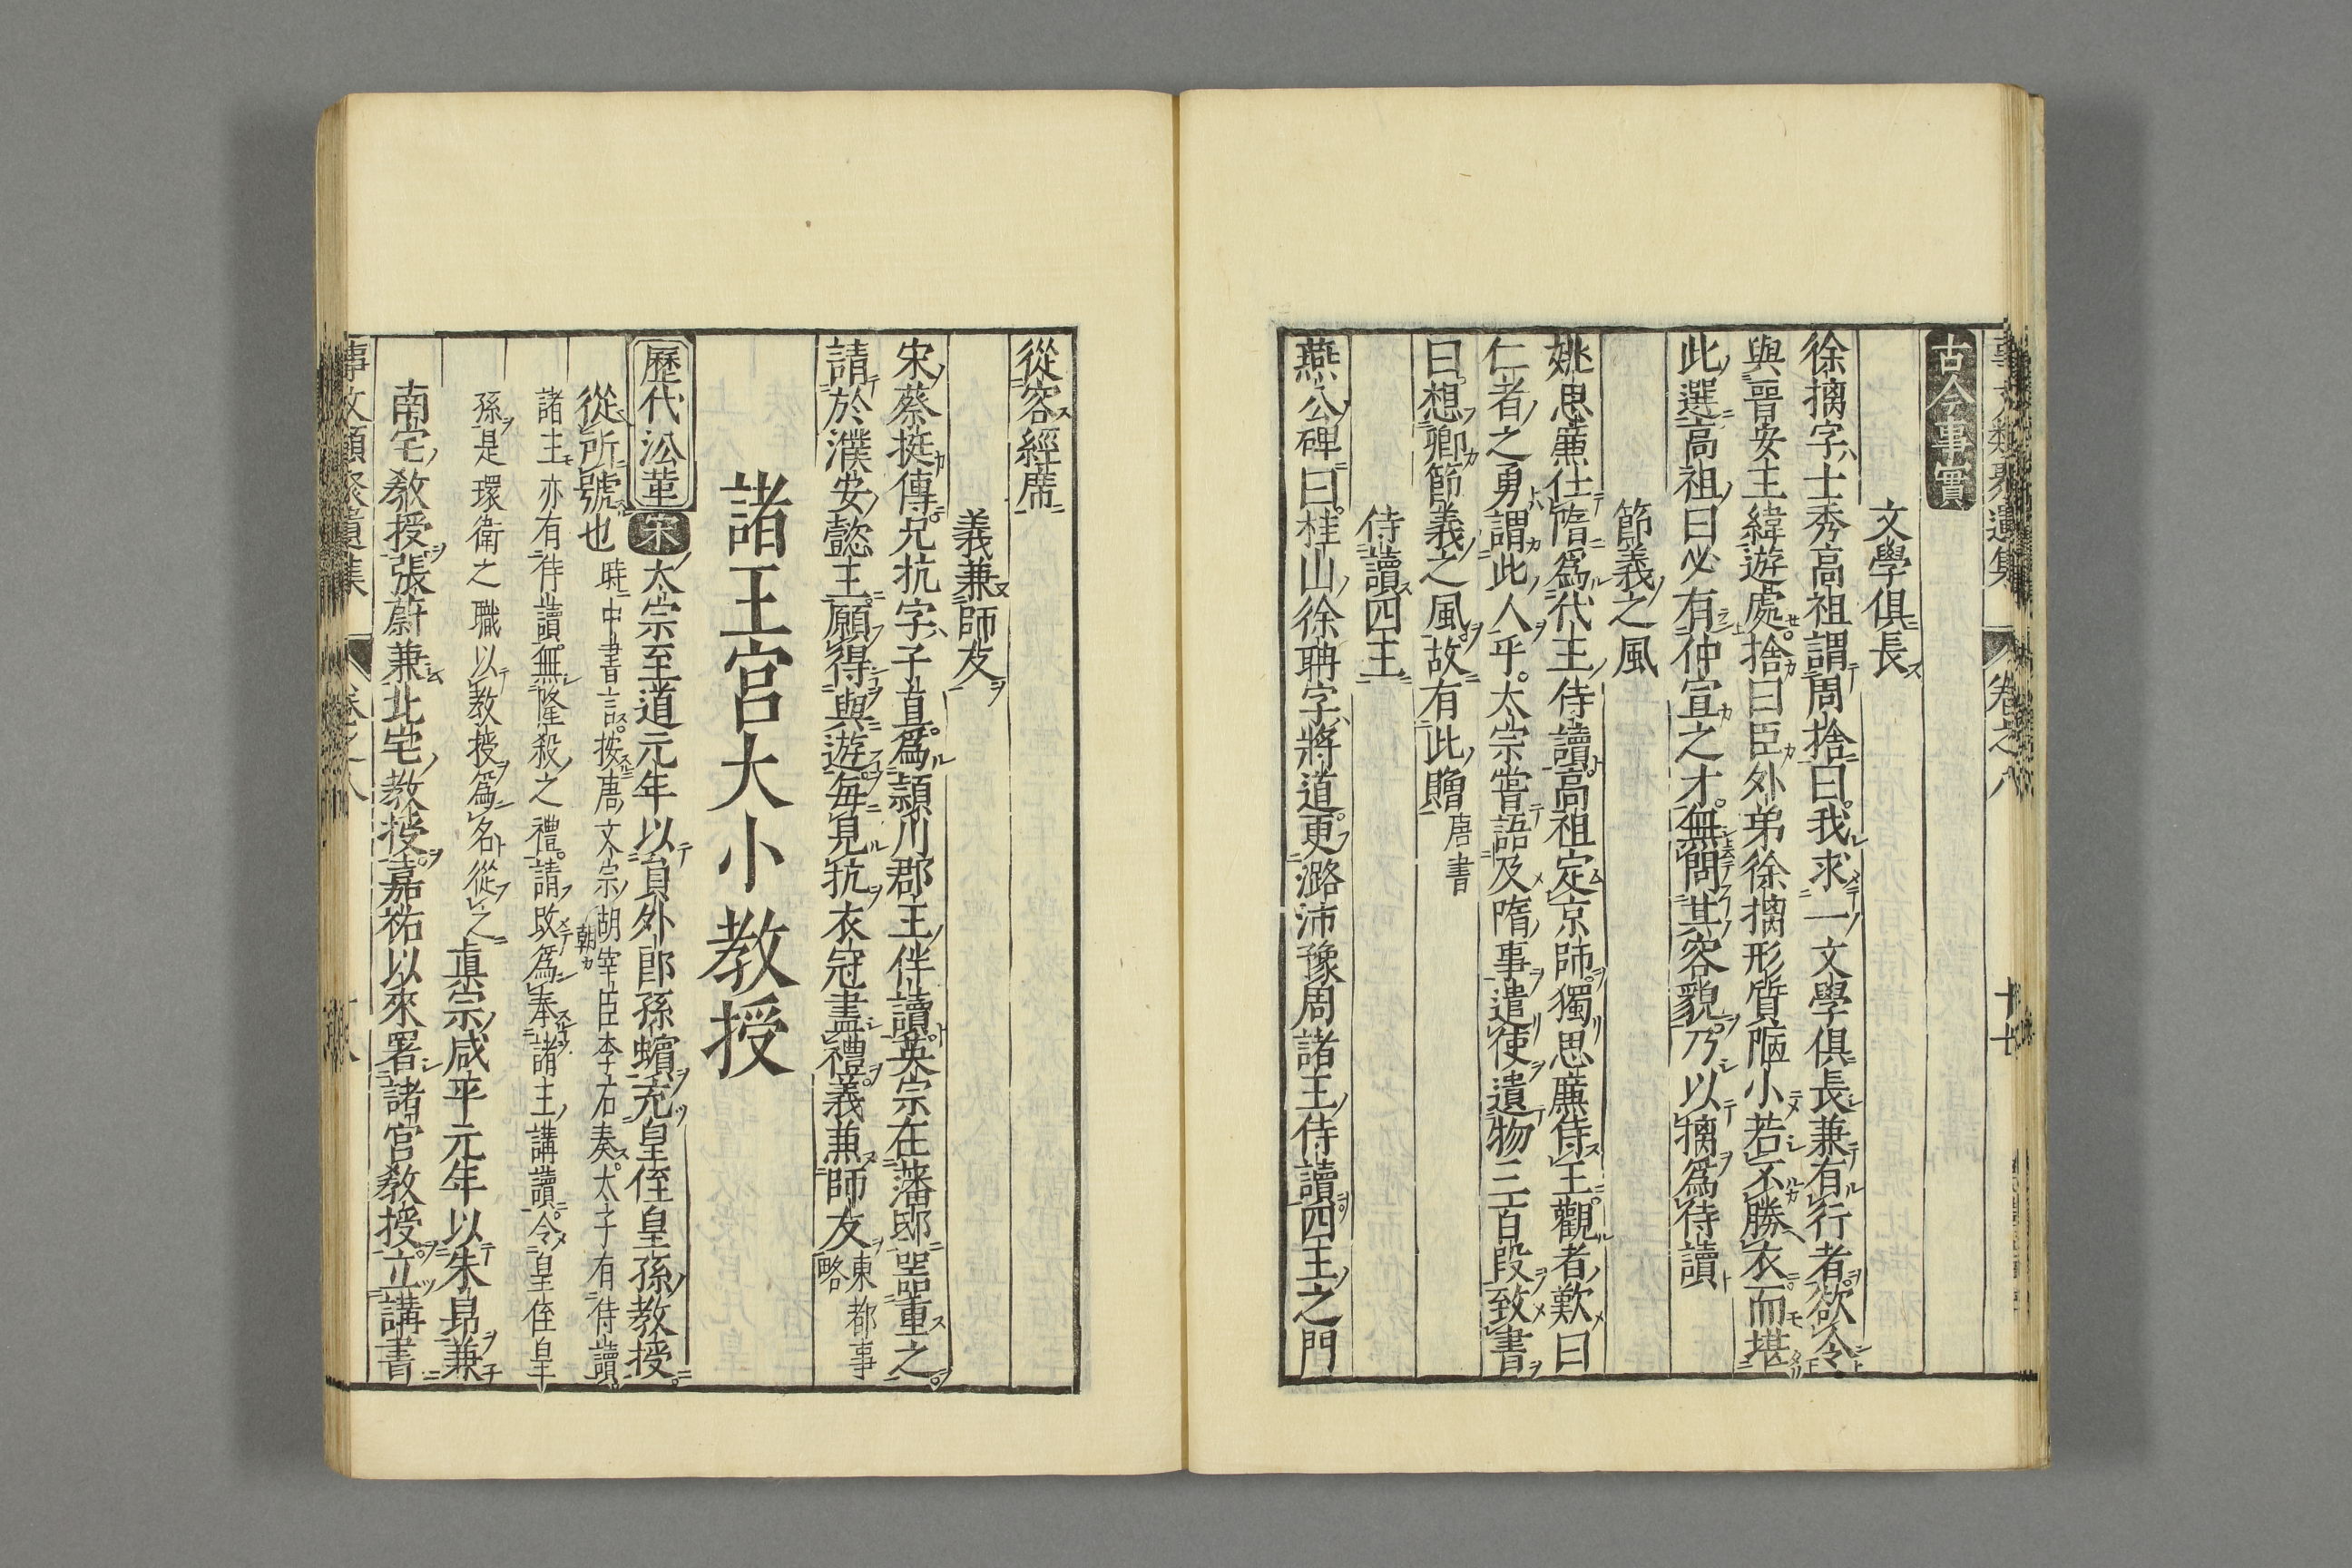 古今事實
文學俱長
徐摛字士秀高祖謂周捨曰我求一文學俱長兼有行者欲令
與晉安王緯遊處捨曰臣外弟徐摛形質陋小若不勝衣而堪
此選高祖曰必有仲宣之才無問其容貌乃以摛爲侍讀
節義之風
姚思廉仕隋爲代王侍讀高祖定京師獨思廉侍王觀者歎曰
仁者之勇謂此人乎太宗嘗語及隋事遣使遺物三百段致書
曰想卿節義之風故有此贈唐書
侍讀四王
燕公碑曰桂山徐聃字將道更潞沛豫周諸王侍讀四王之門
從容經席
義兼師友
宋蔡挺傳兄抗字子直爲潁川郡王伴讀英宗在藩邸器重之
請於濮安懿王願得與遊每見抗衣冠盡禮義兼師友東都事略
諸王宮大小教授
歷代沿革 宋 太宗至道元年以員外郎孫蠙充皇侄皇孫教授
從所號也時中書言按唐文宗朝宰臣李石奏太子有侍讀
諸王亦有侍讀無隆殺之禮請改爲奉諸王講讀令皇侄皇
孫是環衛之職以教授爲名從之眞宗咸平元年以朱昂兼
南宅教授張蔚兼北宅教授嘉祐以來署諸宮教授立講書
事文類聚遺集 卷之八